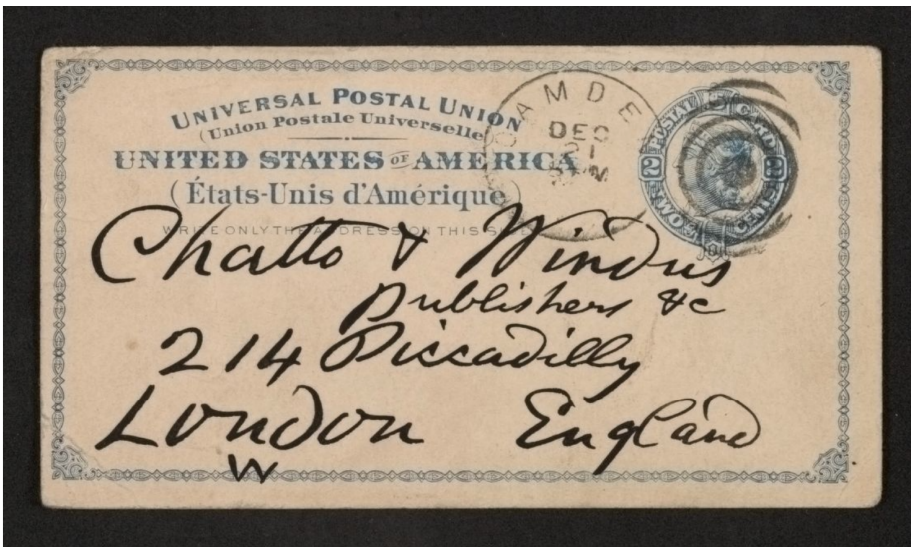 UNIVERSAL POSTAL UNION
(Union Postale Universelle)
UNITED STATES OF AMERICA
(États-Unis d'Amérique)
WRITE ONLY THE ADDRESS ON THIS SIDE
CAMDE
DEC
21
PM
POSTAL CARD
2 2
TWO CENTS
Chatto & Windus
Publishers &c
214 Piccadilly
London England
W